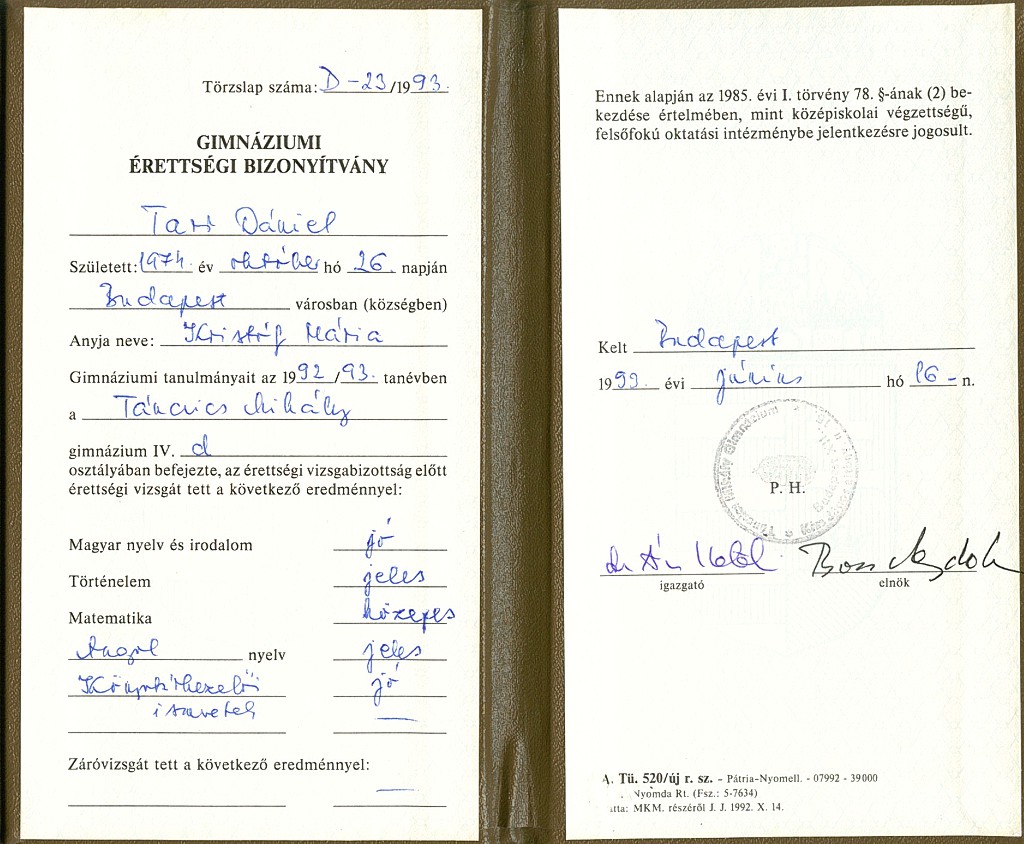 Törzslap száma: D-23/1993.
GIMNÁZIUMI
ÉRETTSÉGI BIZONYÍTVÁNY
Tari Dániel
Született: 1974. év október hó 26. napján
Budapest városban (községben)
Anyja neve: Kristóf Mária
Gimnáziumi tanulmányait az 1992/93. tanévben
a Táncsics Mihály
gimnázium IV. d
osztályában befejezte, az érettségi vizsgabizottság előtt
érettségi vizsgát tett a következő eredménnyel:
Magyar nyelv és irodalom jó
Történelem jeles
Matematika közepes
Angol nyelv jeles
Könyvtárkezelői jó
ismeretek —
Záróvizsgát tett a következő eredménnyel:
—
Ennek alapján az 1985. évi I. törvény 78. §-ának (2) be-
kezdése értelmében, mint középiskolai végzettségű,
felsőfokú oktatási intézménybe jelentkezésre jogosult.
Kelt Budapest
1993. évi június hó 16-n.
Táncsics Mihály Gimnázium
P. H.
igazgató
elnök
A. Tü. 520/új r. sz. – Pátria-Nyomell. - 07992 - 39000
Nyomda Rt. (Fsz.: 5-7634)
MKM. részéről J. J. 1992. X. 14.